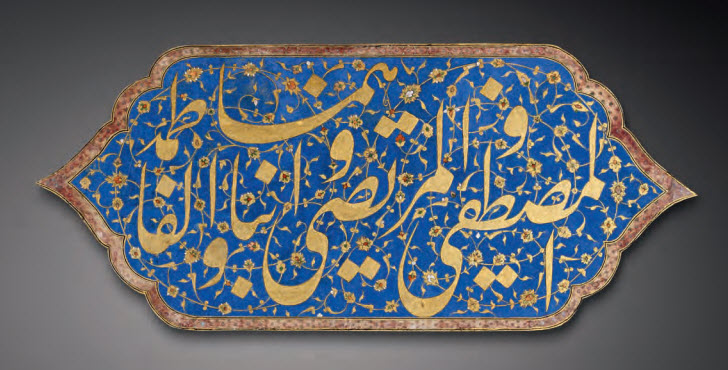 المصطفى و المرتضى و ابناهما و الفاطمه